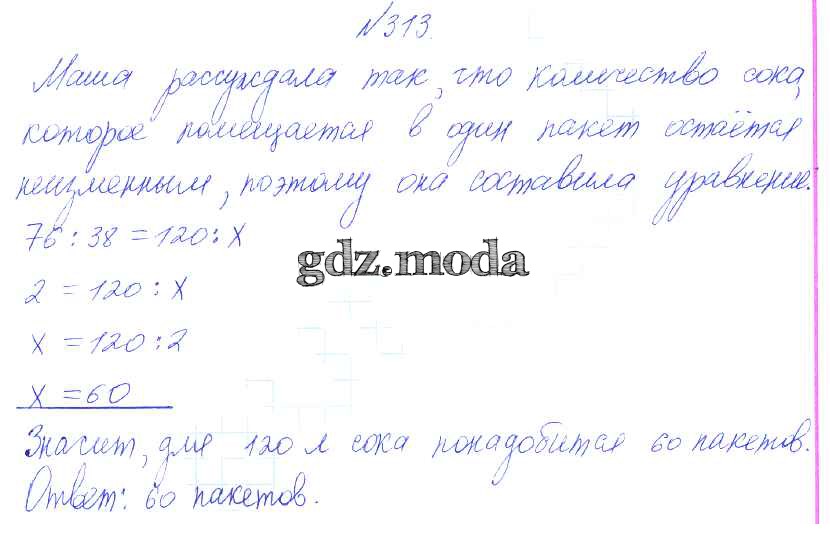 №313.
Маша рассуждала так, что количество сока,
которое помещается в один пакет остаётся
неизменным, поэтому она составила уравнение:
76 : 38 = 120 : x
gdz.moda
2 = 120 : x
x = 120 : 2
x = 60
Значит, для 120 л сока понадобится 60 пакетов.
Ответ: 60 пакетов.